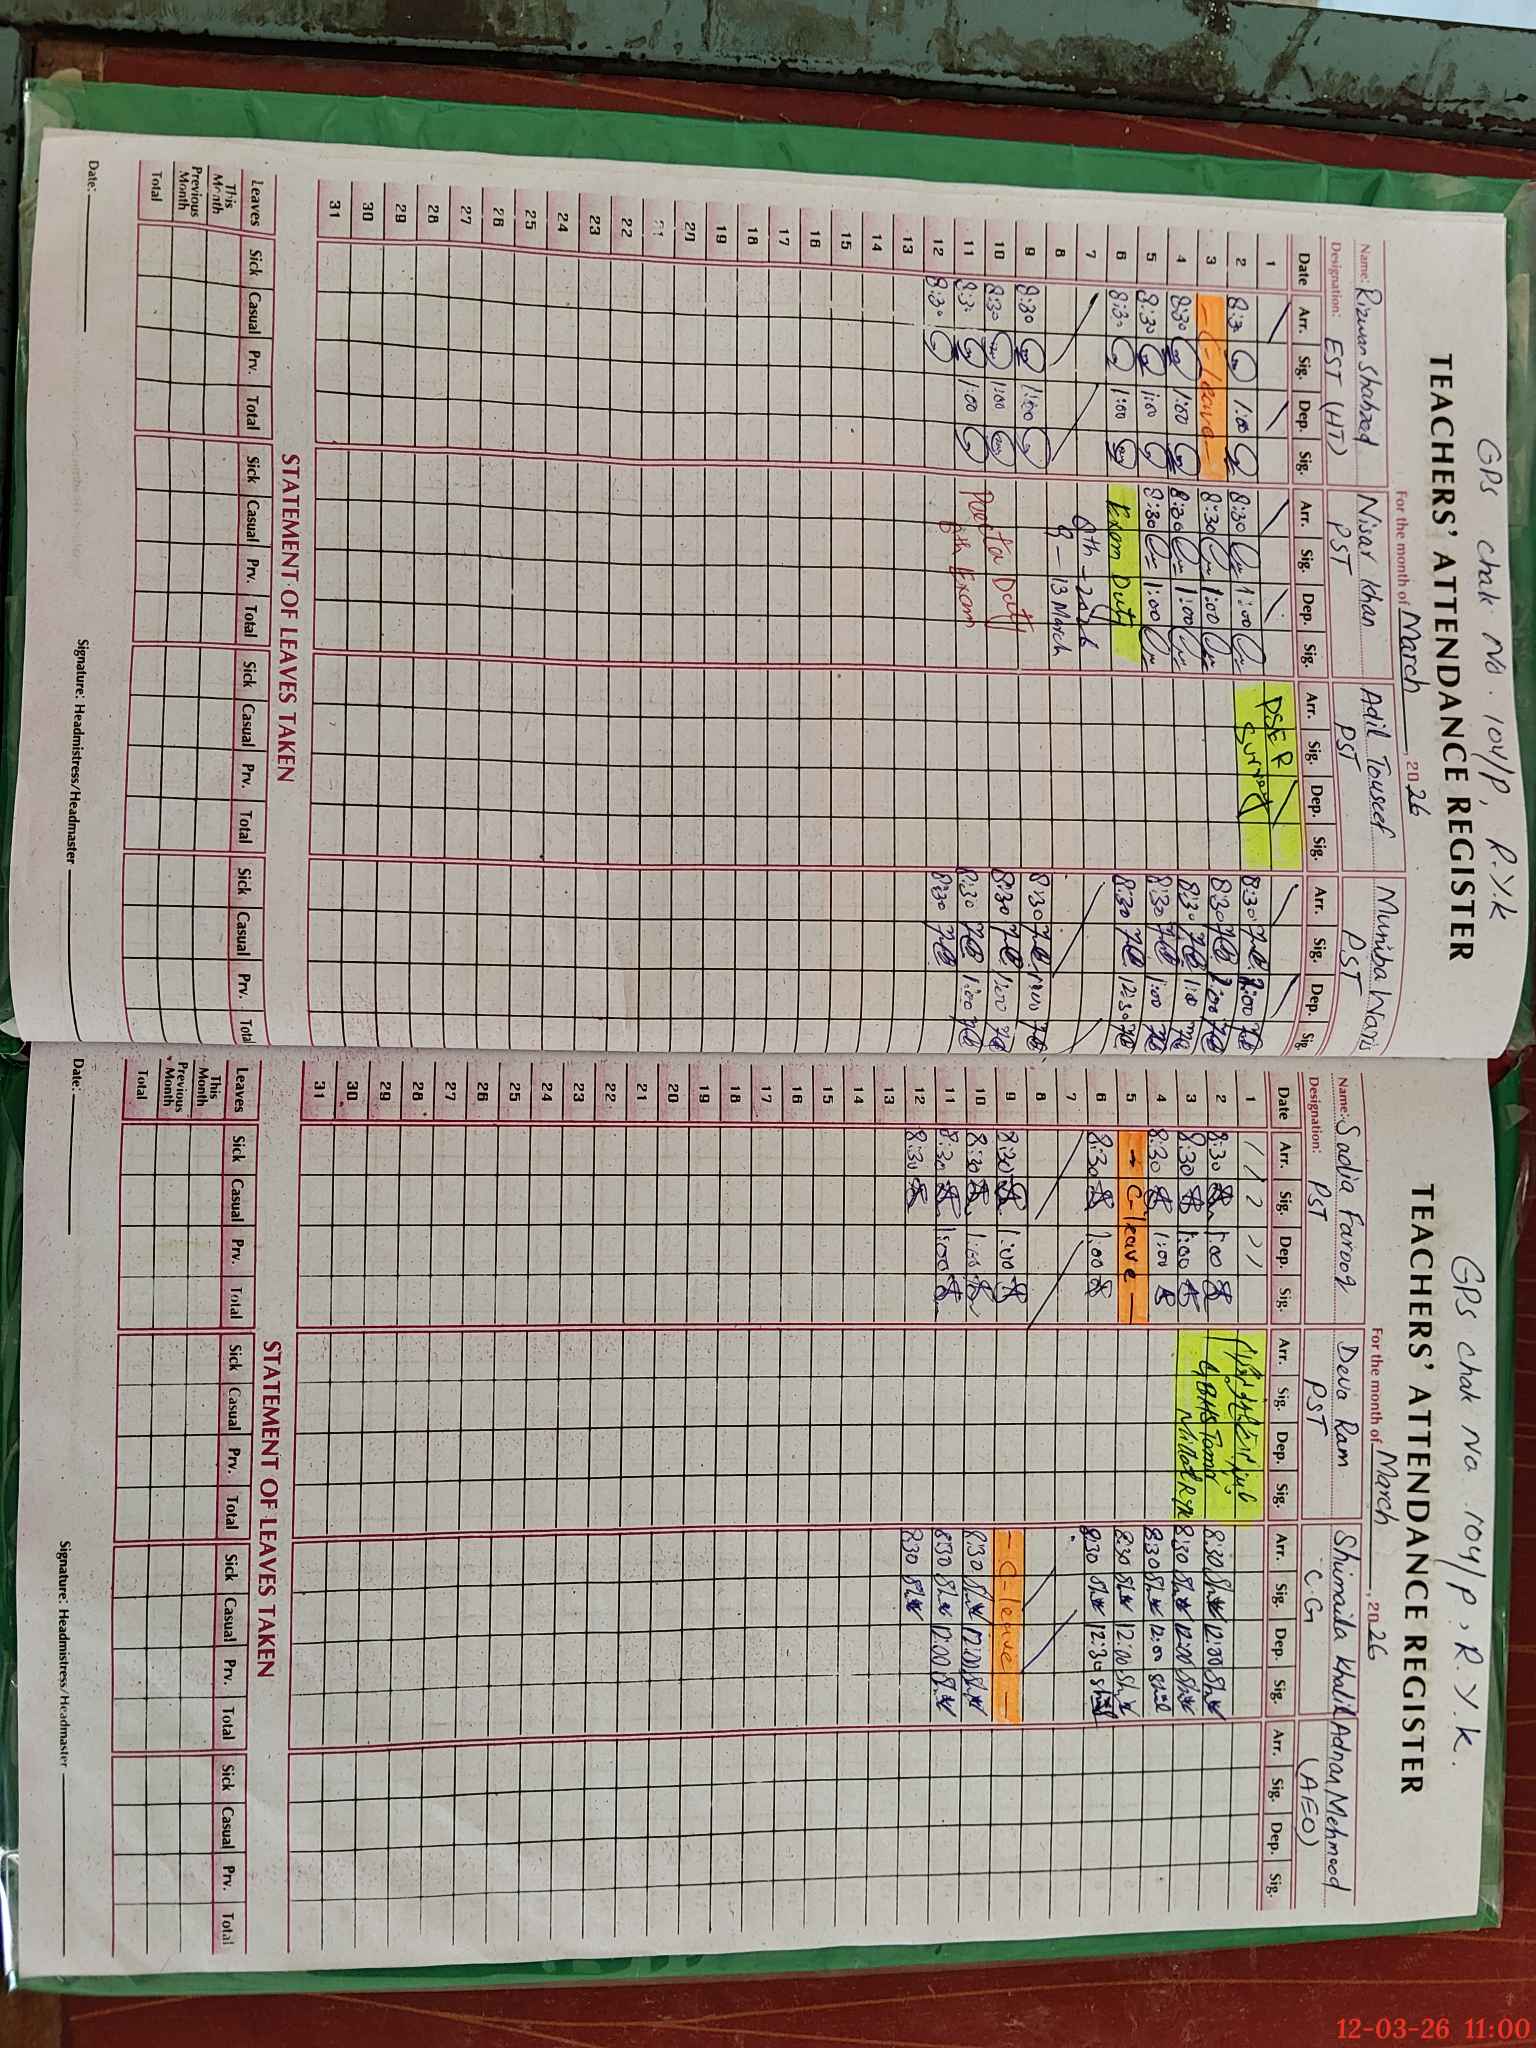 GPS chak No. 104/P, R.Y.K
TEACHERS' ATTENDANCE REGISTER
For the month of March, 2026
Name: Rizwan Shahzad Nisar Khan Adil Touseef Muniba Waris
Designation: EST (HT) PST PST PST
Date Arr. Sig. Dep. Sig. Arr. Sig. Dep. Sig. Arr. Sig. Dep. Sig. Arr. Sig. Dep. Sig.
1 PSER
2 8:30 1:00 8:30 1:00 Survey 8:30 1:00
3 - C-leave - 8:30 1:00 8:30 1:00
4 8:30 1:00 8:30 1:00 8:30 1:00
5 8:30 1:00 8:30 1:00 8:30 1:00
6 8:30 1:00 Exam Duty 8:30 12:30
7
8 9-13 March
9 8:30 1:00 8:30 1:00
10 8:30 1:00 Duty 8:30 1:00
11 8:30 1:00 8th Exam 8:30 1:00
12 8:30 8:30
13
14
15
16
17
18
19
20
21
22
23
24
25
26
27
28
29
30
31
STATEMENT OF LEAVES TAKEN
Leaves Sick Casual Prv. Total Sick Casual Prv. Total Sick Casual Prv. Total Sick Casual Prv. Total
This Month
Previous Month
Total
Date: Signature: Headmistress/Headmaster
GPS chak No 104/P, R.Y.K.
TEACHERS' ATTENDANCE REGISTER
For the month of March, 2026
Name: Sadia Farooq Deva Ram Shumaila Khalil Adnan Mehmood
Designation: PST PST C.G (AEO)
Date Arr. Sig. Dep. Sig. Arr. Sig. Dep. Sig. Arr. Sig. Dep. Sig. Arr. Sig. Dep. Sig.
1
2 8:30 1:00 8:30 12:00
3 8:30 1:00 8:30 12:00
4 8:30 1:00 8:30 12:00
5 C-leave - 8:30 12:00
6 8:30 1:00 8:30 12:30
7
8
9 8:30 1:00 - C-leave -
10 8:30 1:00 8:30 12:00
11 8:30 1:00 8:30 12:00
12 8:30 8:30
13
14
15
16
17
18
19
20
21
22
23
24
25
26
27
28
29
30
31
STATEMENT OF LEAVES TAKEN
Leaves Sick Casual Prv. Total Sick Casual Prv. Total Sick Casual Prv. Total Sick Casual Prv. Total
This Month
Previous Month
Total
Date: Signature: Headmistress/Headmaster
12-03-26 11:00